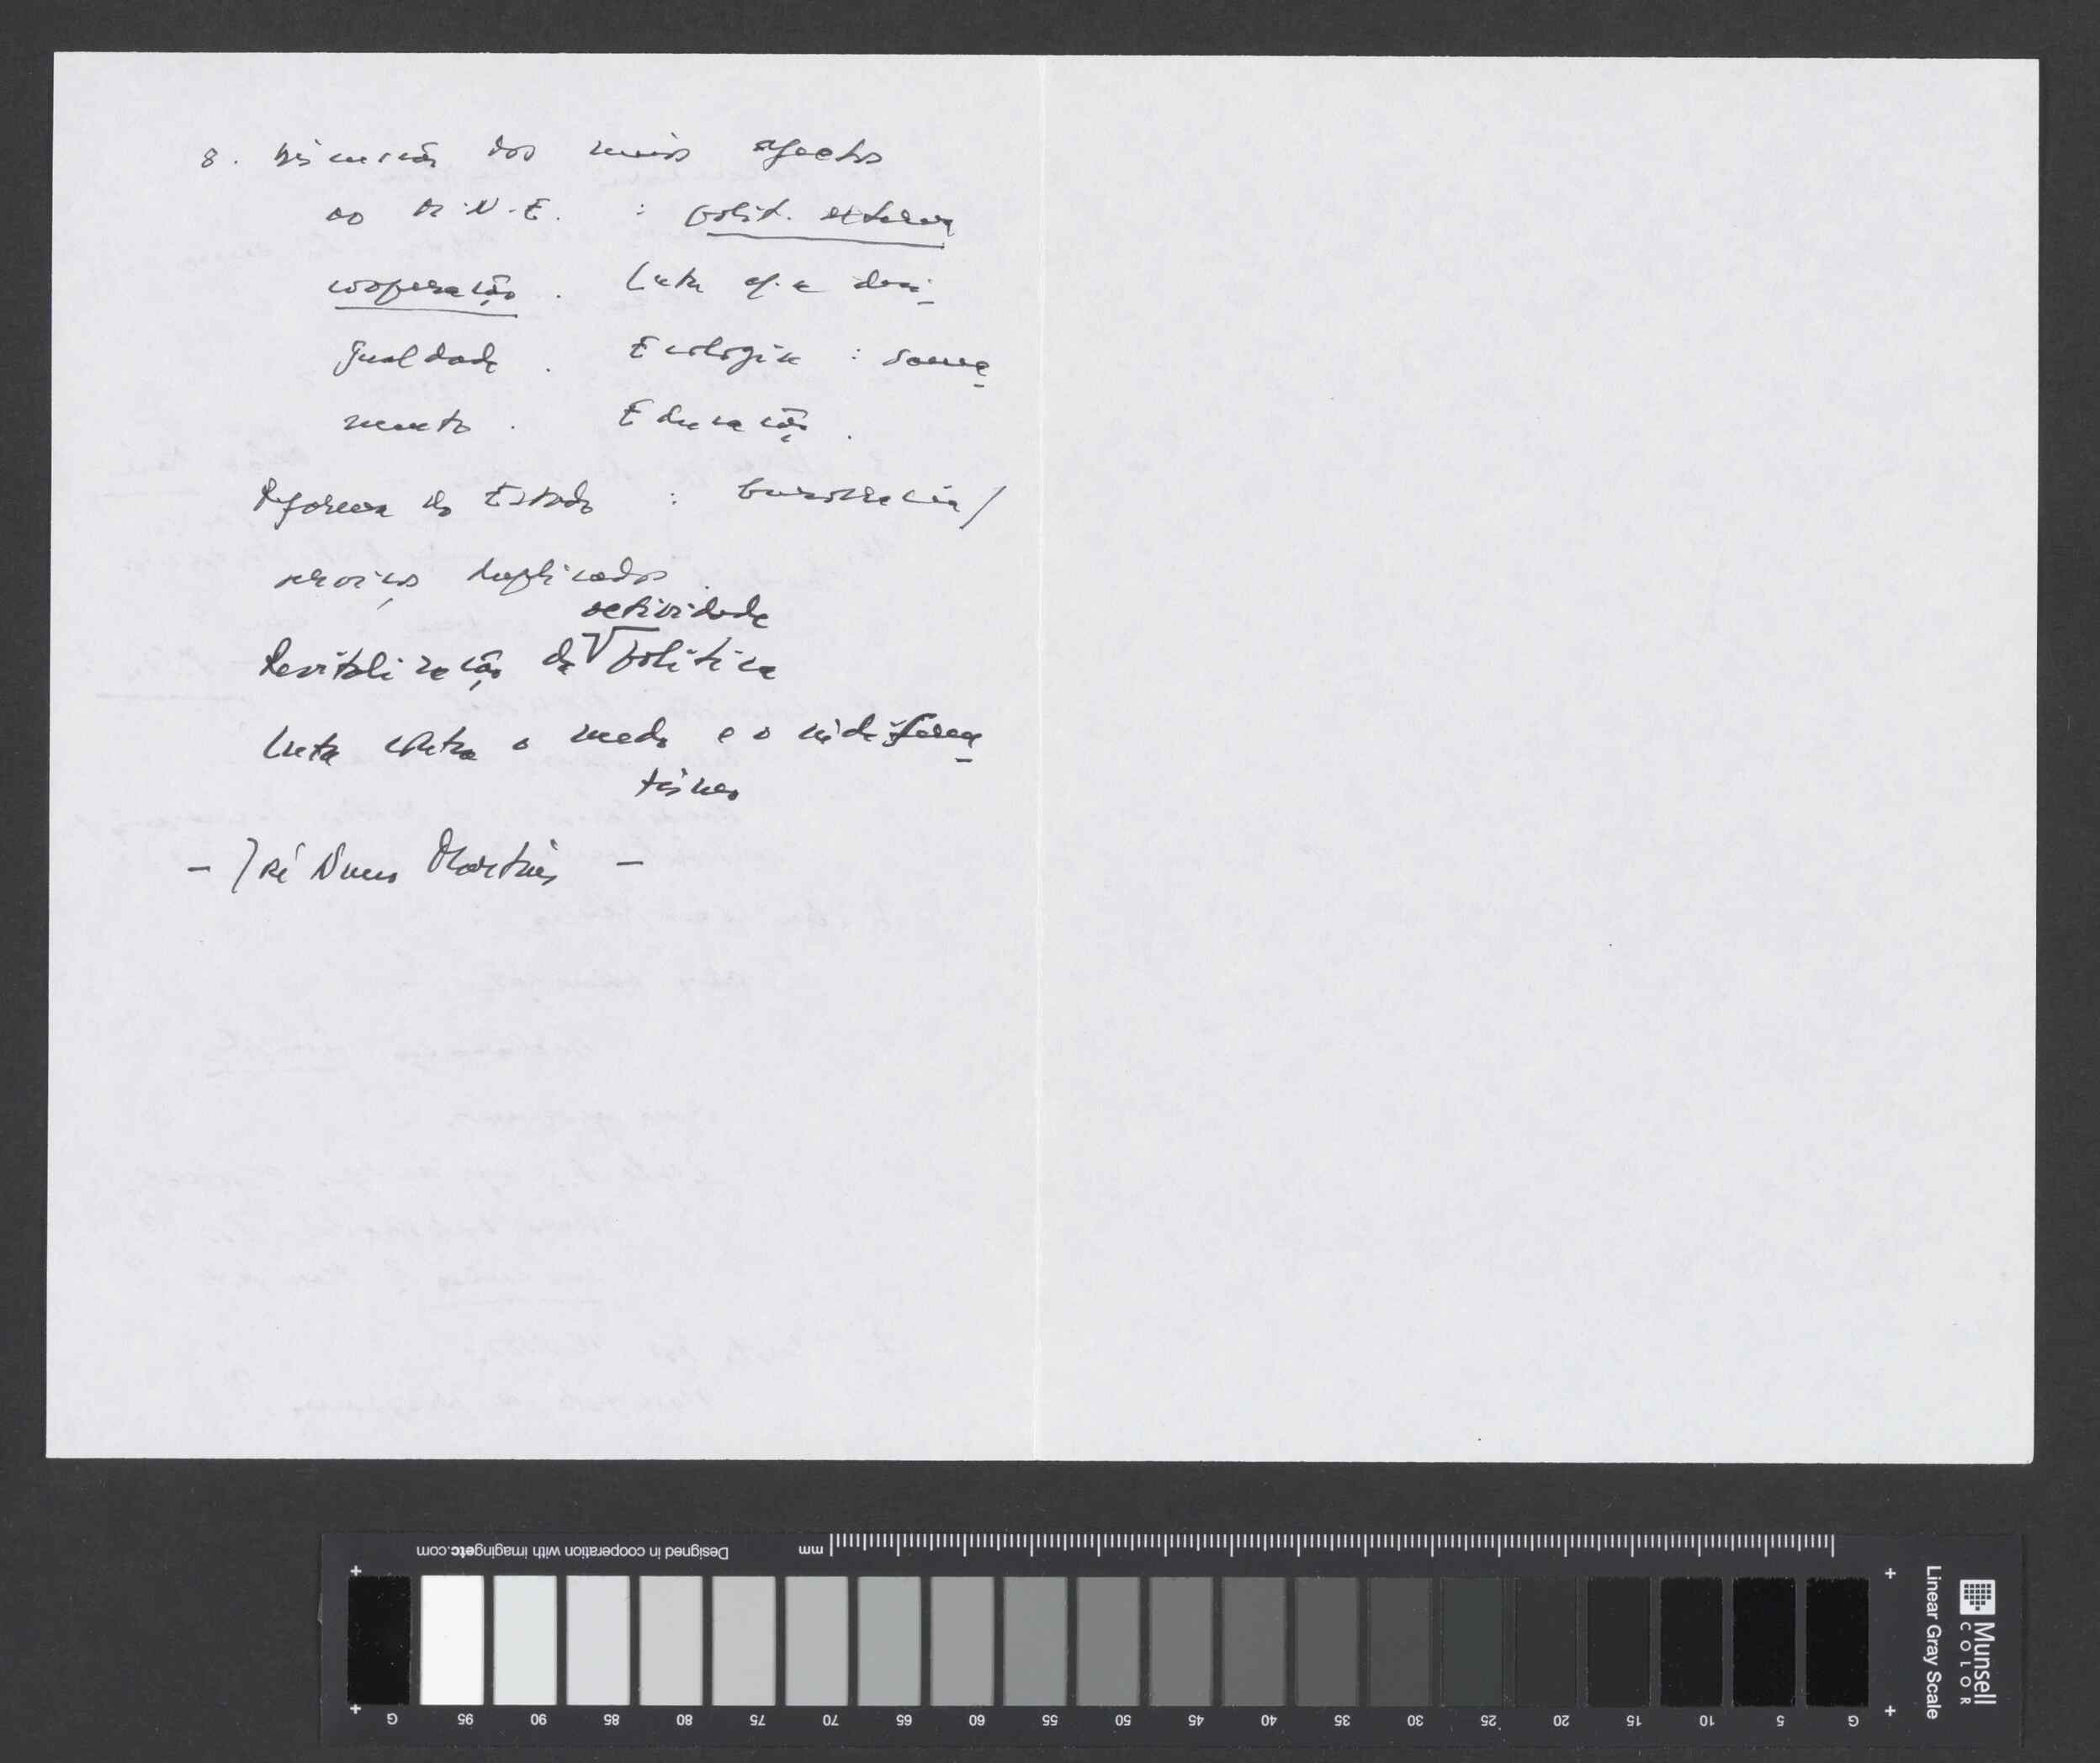 8. discussão dos meios afectos
ao M.N.E. : polít. externa
cooperação. Luta c/ a desi-
gualdade. Ecologia : sanea-
mento. Educação.
Reforma do Estado : burocracia/
serviços duplicados.
actividade
Revitalização da política
Luta contra o medo e o
tismo
- José Nuno Martins -
Designed in cooperation with imagingetc.com
mm
G 95 90 85 80 75 70 65 60 55 50 45 40 35 30 25 20 15 10 5 G
Linear Gray Scale
Munsell
COLOR